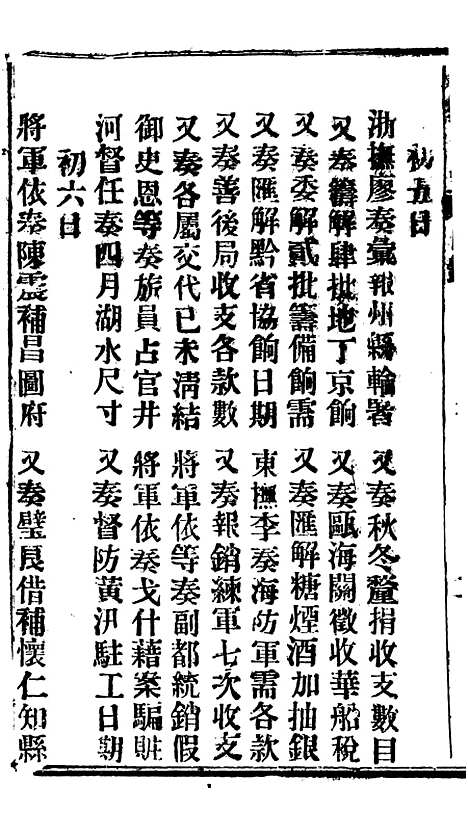 初五日
浙撫廖奏彙報州縣輪署　又奏秋冬釐捐收支數目
又奏籌解肆批地丁京餉　又奏甌海關徵收華船稅
又奏委解貳批籌備餉需　又奏匯解糖煙酒加抽銀
又奏匯解黔省協餉日期　東撫李奏海防軍需各款
又奏善後局收支各款數　又奏報銷練軍七次收支
又奏各屬交代已未清結　將軍依等奏副都統銷假
御史恩等奏旅員占官井　將軍依奏戈什藉案騙賍
河督任奏四月湖水尺寸　又奏督防黃汛駐工日期
初六日
將軍依奏陳震補昌圖府　又奏璧良借補懷仁知縣